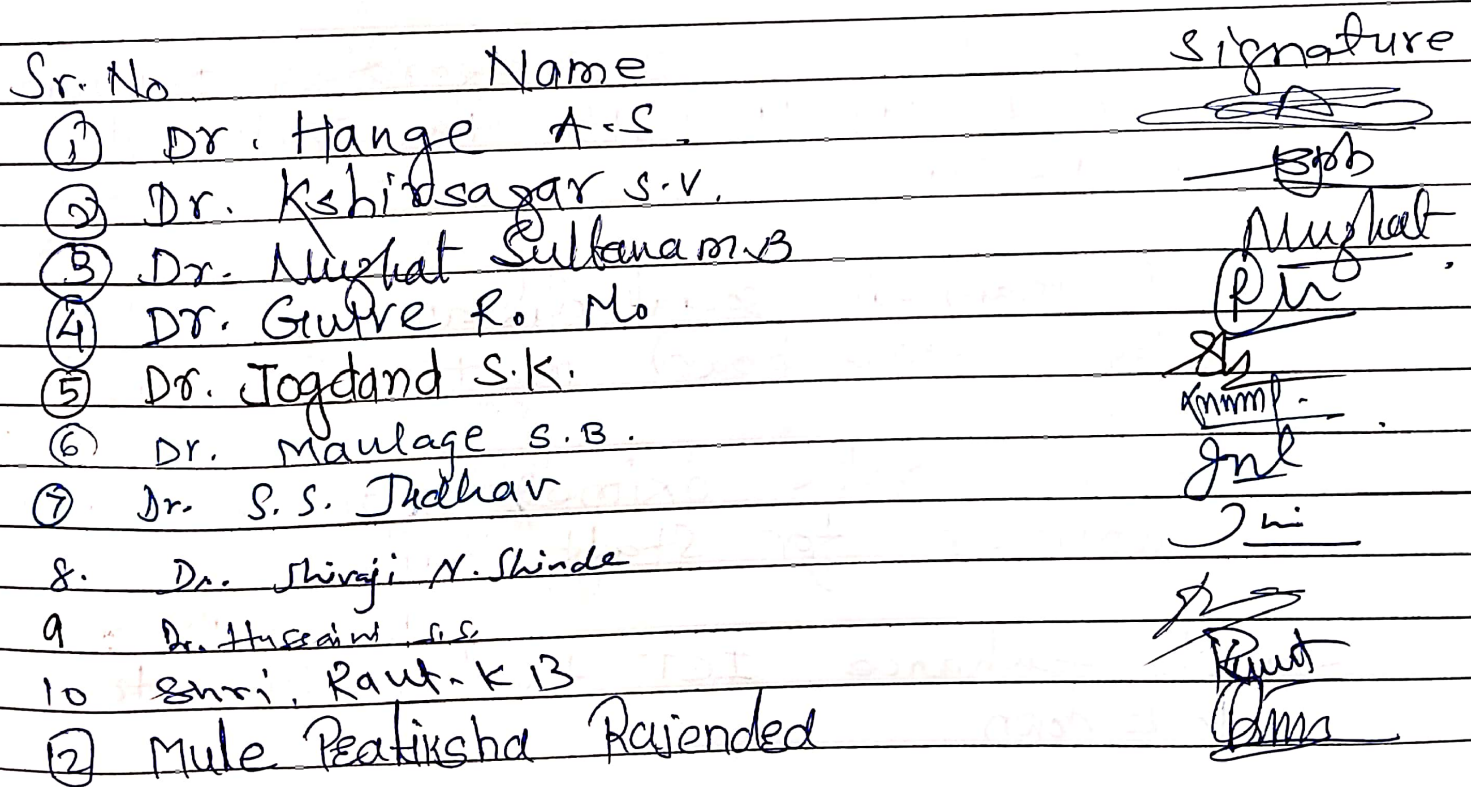 Sr. No Name Signature
① Dr. Hange A.S.
② Dr. Kshirsagar S.V.
③ Dr. Nuzhat Sultana M.B Nuzhat
④ Dr. Guttre R. M.
⑤ Dr. Jogdand S.K.
⑥ Dr. Maulage S.B.
⑦ Dr. S.S. Jadhav
8. Dr. Shivaji N. Shinde
9 Dr. Hussaini S.S.
10 Shri. Raut. K B Raut
⑫ Mule Peatiksha Rajended